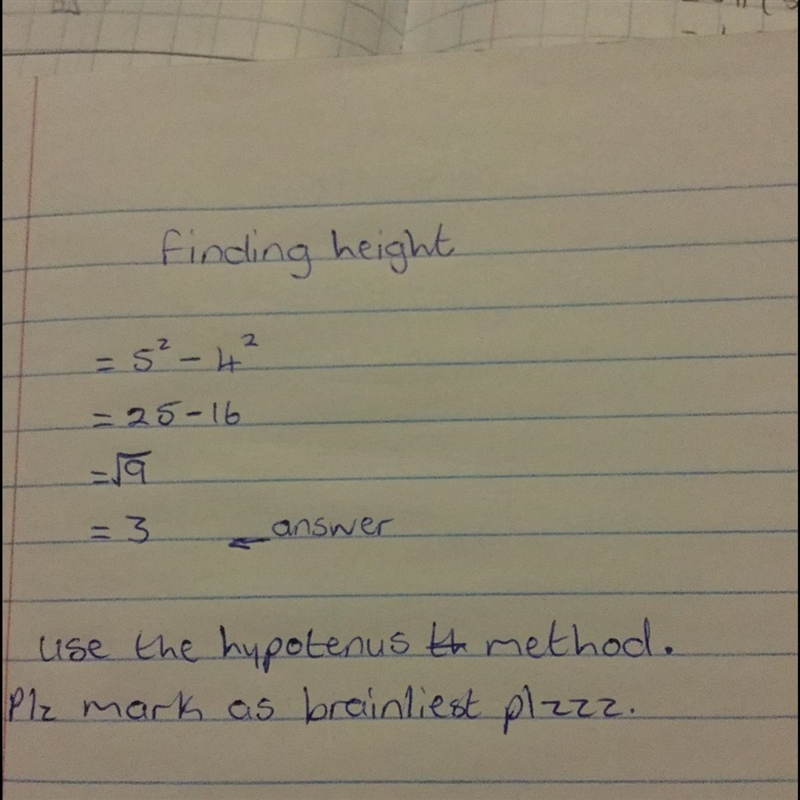 Finding height
= 5² - 4²
= 25 - 16
= √9
= 3 ← answer
use the hypotenus method.
Plz mark as brainliest plzzz.